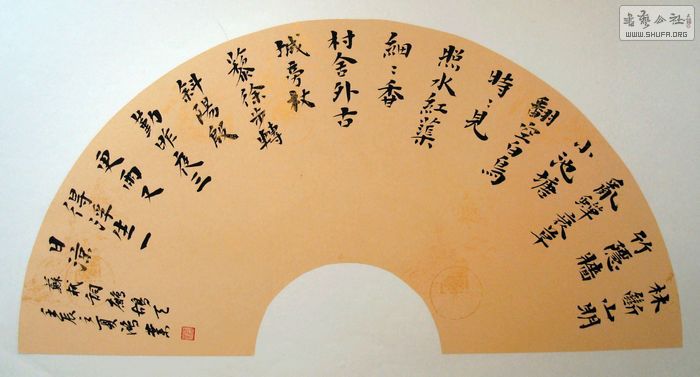 林斷山明
竹隱牆
亂蟬衰草
小池塘
翻空白鳥
時〻見
照水紅蕖
細〻香
村舍外古
城旁杖
藜徐步轉
斜陽殷
勤昨夜三
更雨又
得浮生一
日涼
蘇軾詞鷓鴣天
壬辰之夏
書藝公社
WWW.SHUFA.ORG